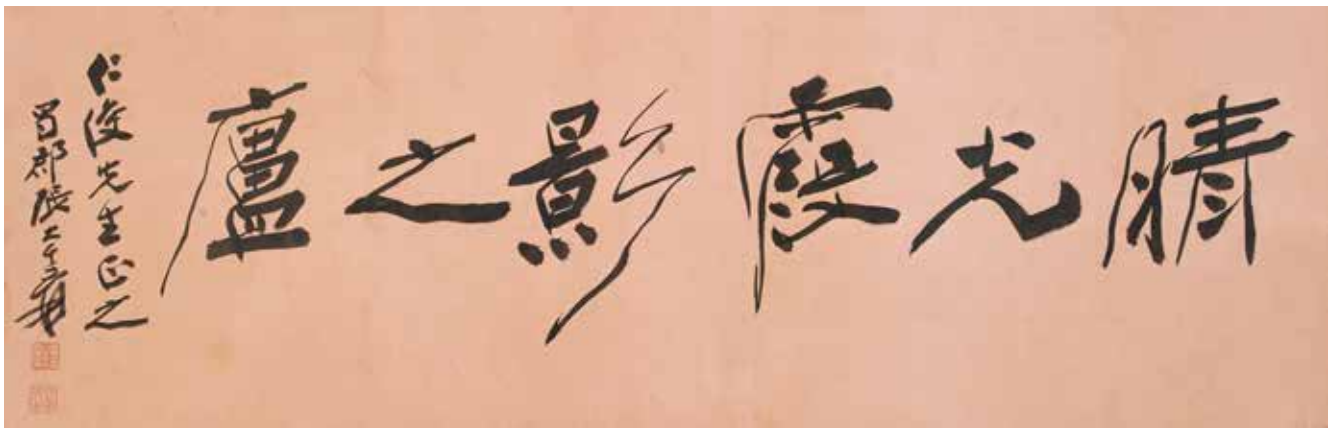 晴光霞影之廬
仁俊先生正之
蜀郡張大千爰